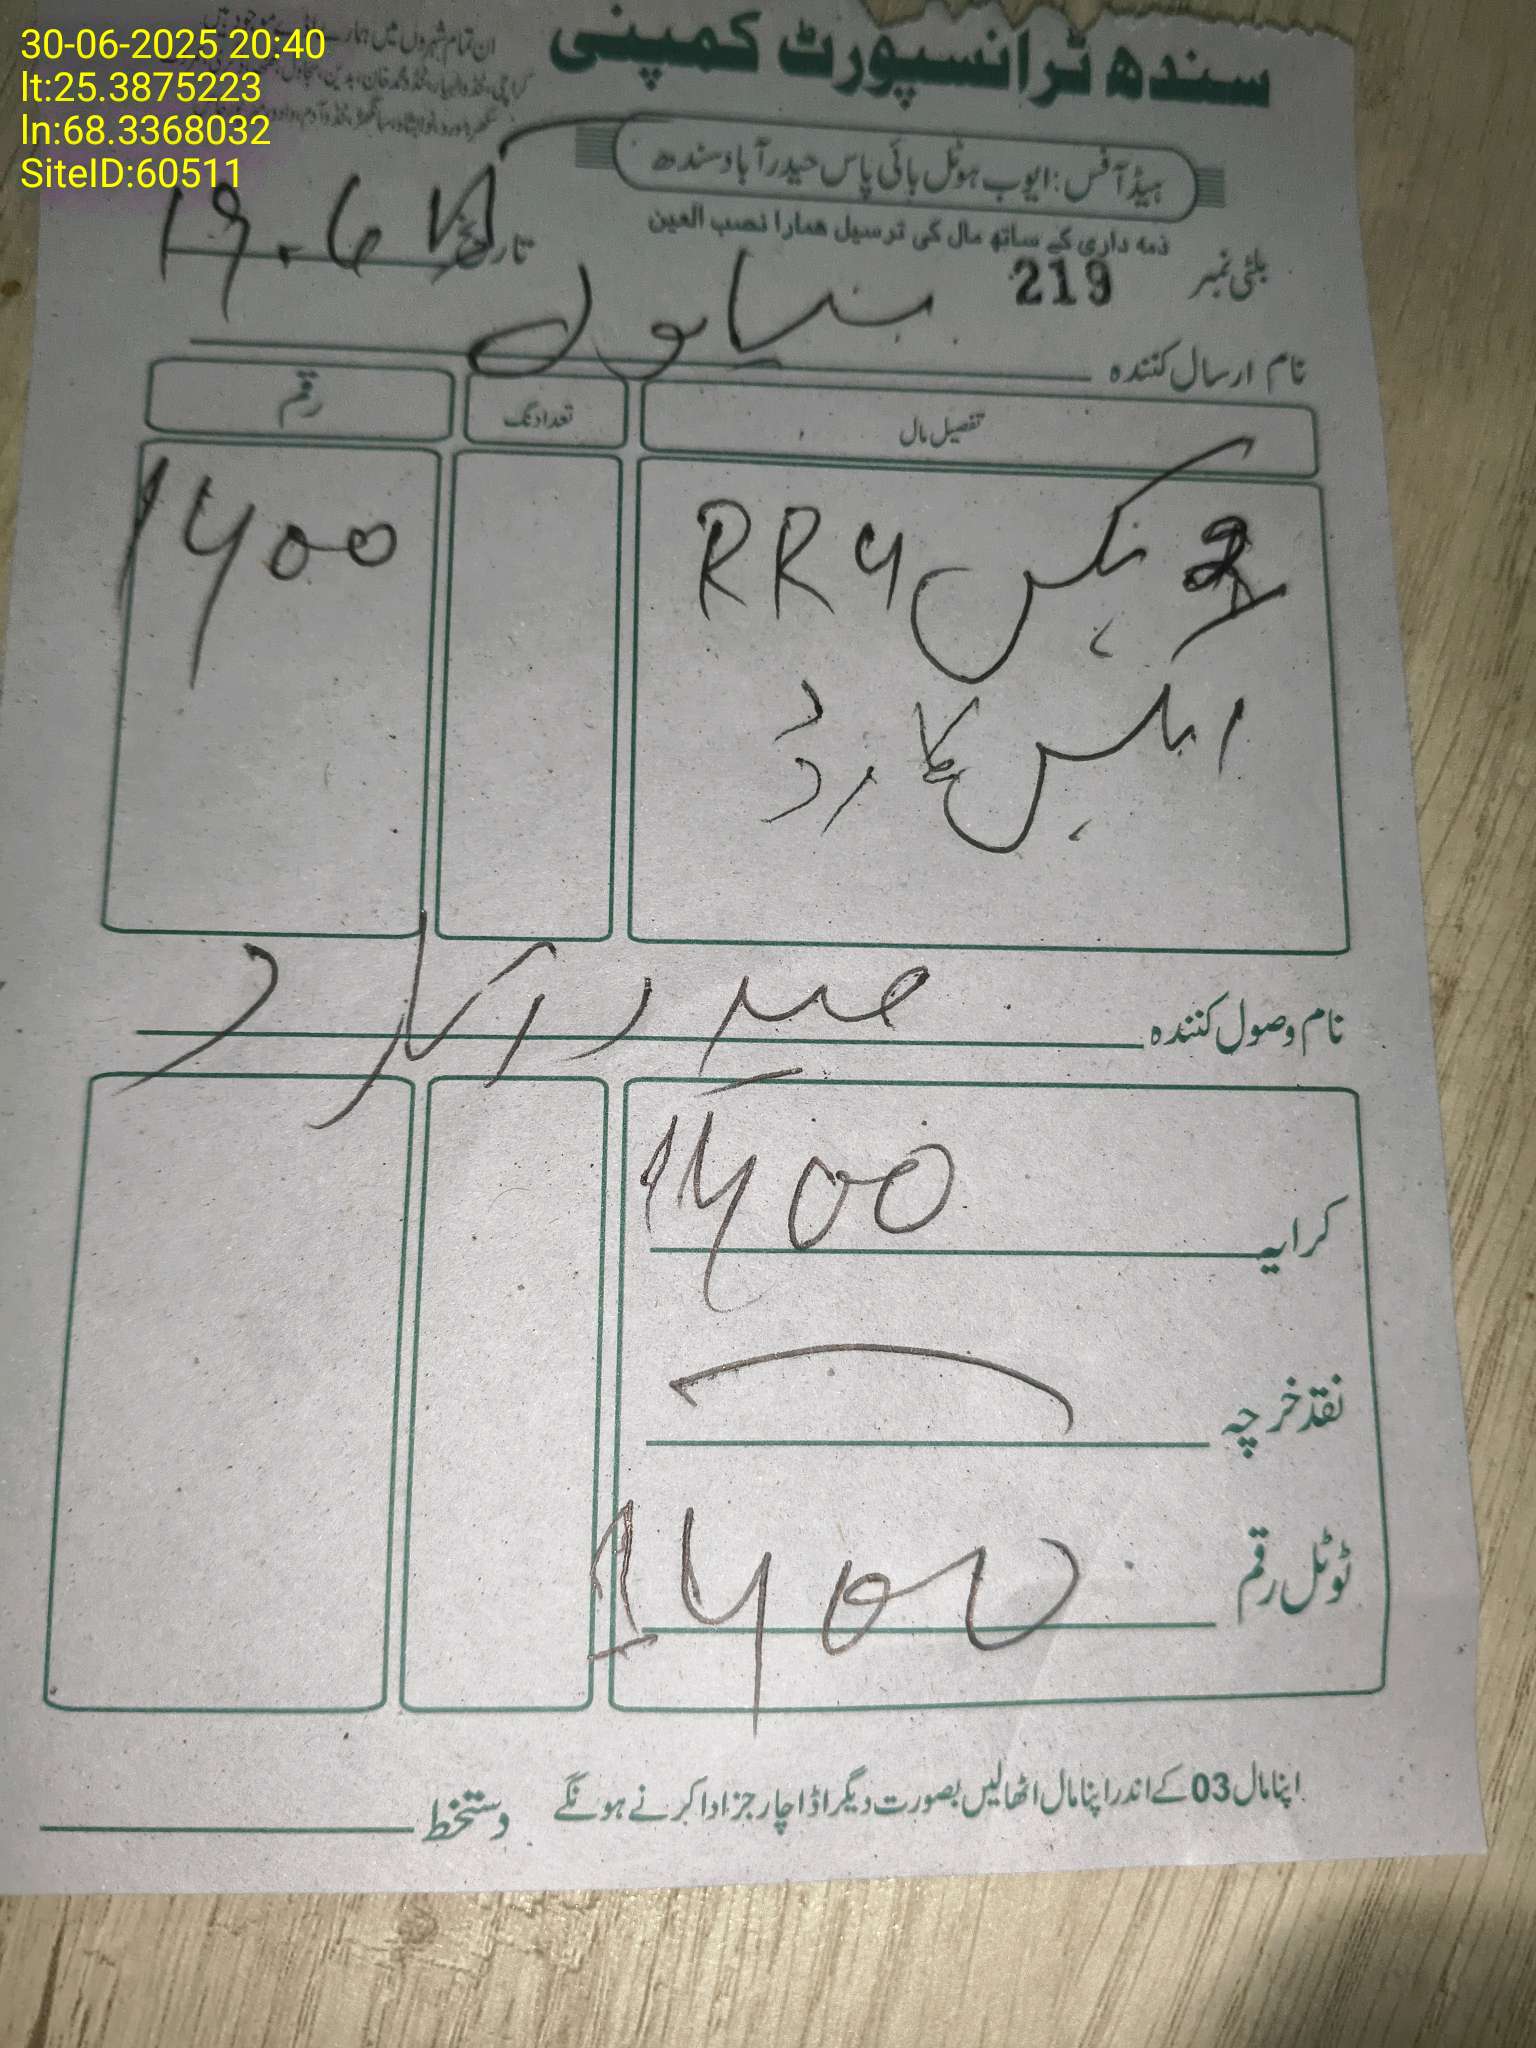 30-06-2025 20:40
lt:25.3875223
ln:68.3368032
SiteID:60511
سندھ ٹرانسپورٹ کمپنی
ان تمام شہروں میں ہمارے
ہیڈ آفس: ایوب ہوٹل بائی پاس حیدرآباد سندھ
ذمہ داری کے ساتھ مال کی ترسیل ہمارا نصب العین
بلٹی نمبر 219
تاریخ
نام ارسال کنندہ
تفصیل مال تعداد نگ رقم
بکس RRU
1400
کارڈ
نام وصول کنندہ حیدرآباد
کرایہ 1400
نقد خرچہ
ٹوٹل رقم 1400
اپنا مال 03 کے اندر اپنا مال اٹھالیں بصورت دیگر اڈا چارجز ادا کرنے ہونگے
دستخط